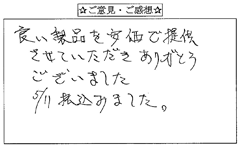 ☆ご意見・ご感想☆
良い製品を安価で提供
させていただきありがとう
ございました
5/11 振込みました。